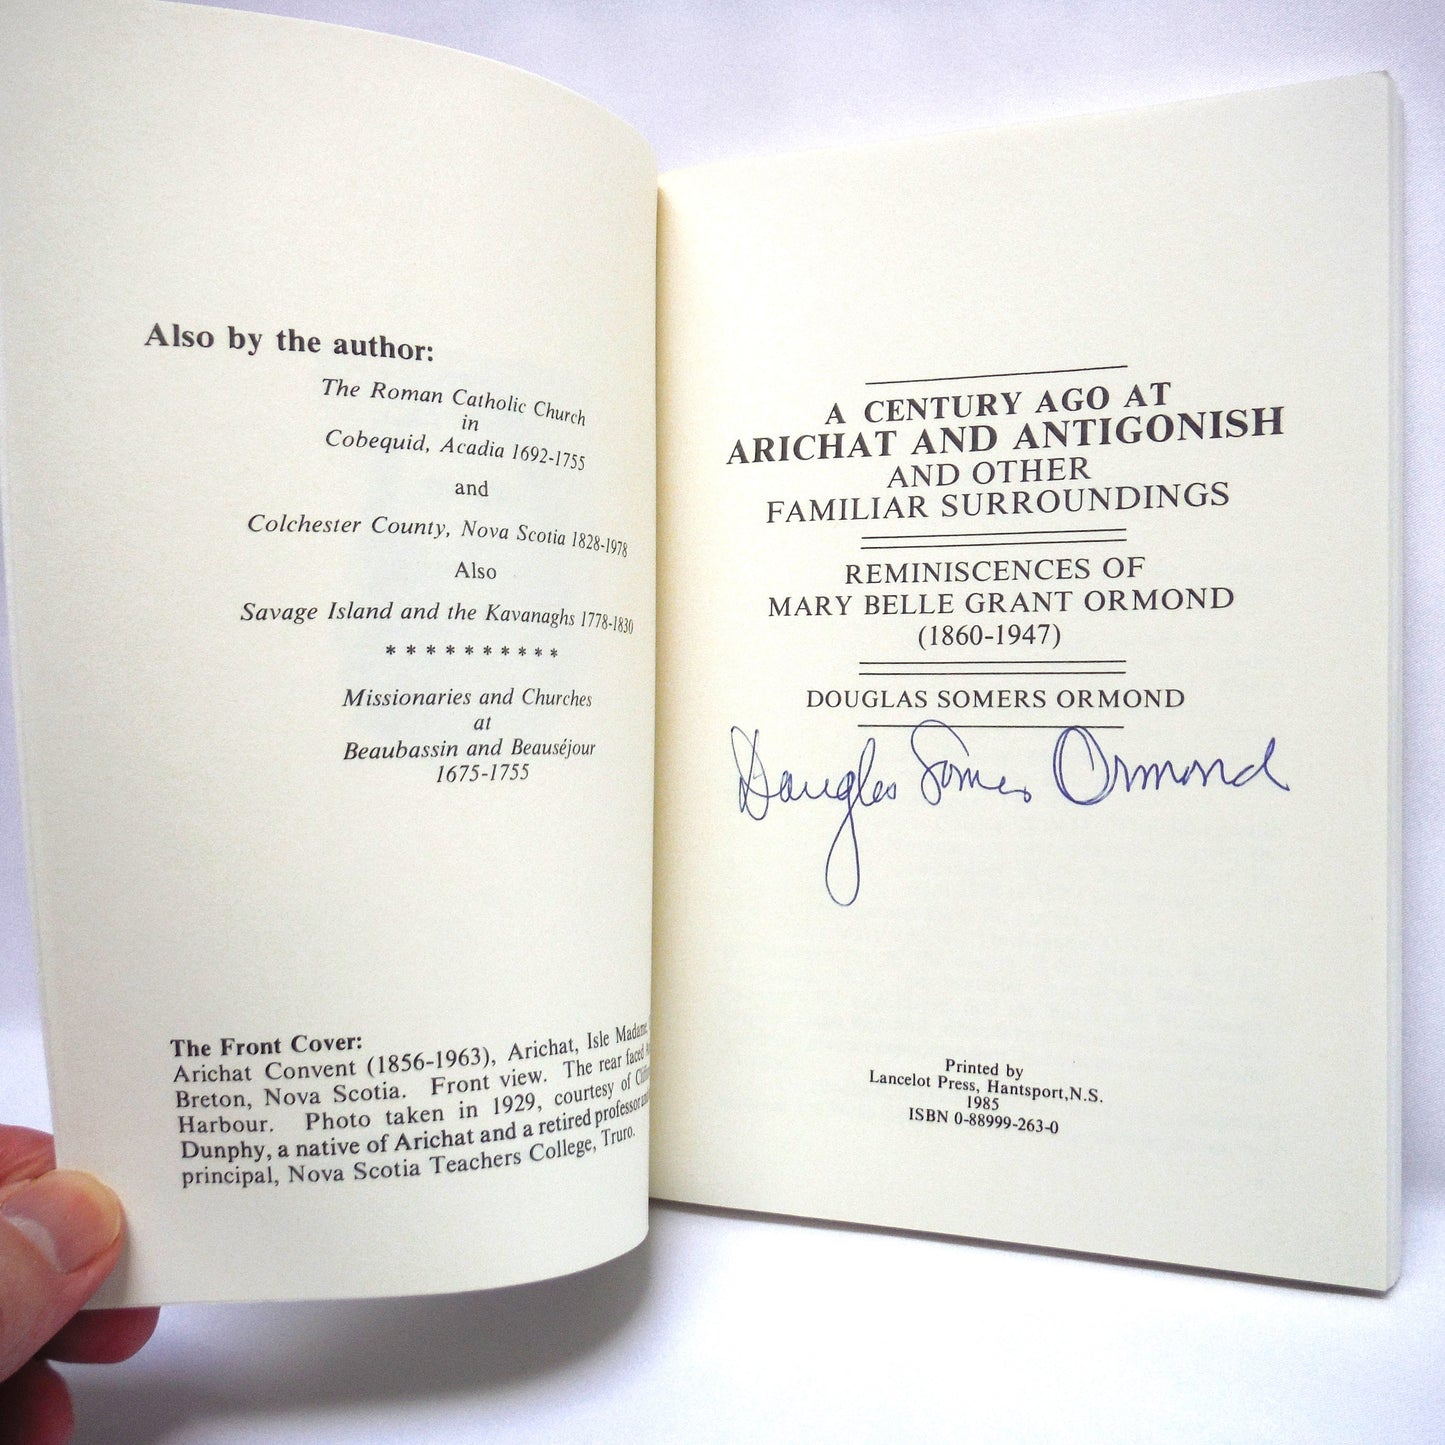 Also by the author:
The Roman Catholic Church
in
Cobequid, Acadia 1692-1755
and
Colchester County, Nova Scotia 1828-1978
Also
Savage Island and the Kavanaghs 1778-1830
* * * * * * * * * *
Missionaries and Churches
at
Beaubassin and Beauséjour
1675-1755
The Front Cover:
Arichat Convent (1856-1963), Arichat, Isle Madame,
Breton, Nova Scotia. Front view. The rear faced
Harbour. Photo taken in 1929, courtesy of
Dunphy, a native of Arichat and a retired professor
principal, Nova Scotia Teachers College, Truro.
A CENTURY AGO AT
ARICHAT AND ANTIGONISH
AND OTHER
FAMILIAR SURROUNDINGS
REMINISCENCES OF
MARY BELLE GRANT ORMOND
(1860-1947)
DOUGLAS SOMERS ORMOND
Douglas Somers Ormond
Printed by
Lancelot Press, Hantsport,N.S.
1985
ISBN 0-88999-263-0